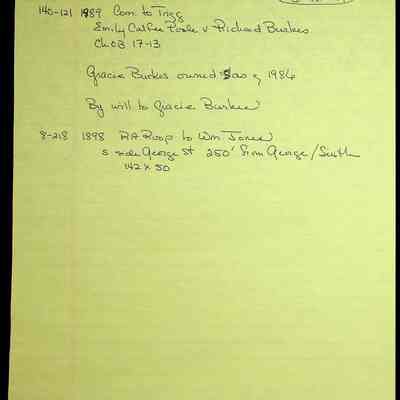 140-121 1989 Com. to Trigg
Emily Calfee Poole v Richard Burkes
Ch OB 17-13
Gracie Burkes owned as of 1986
By will to Gracie Burkes
8-218 1898 RA Roop to Wm Jones
s side George St 250' from George/Smith
142 x 50